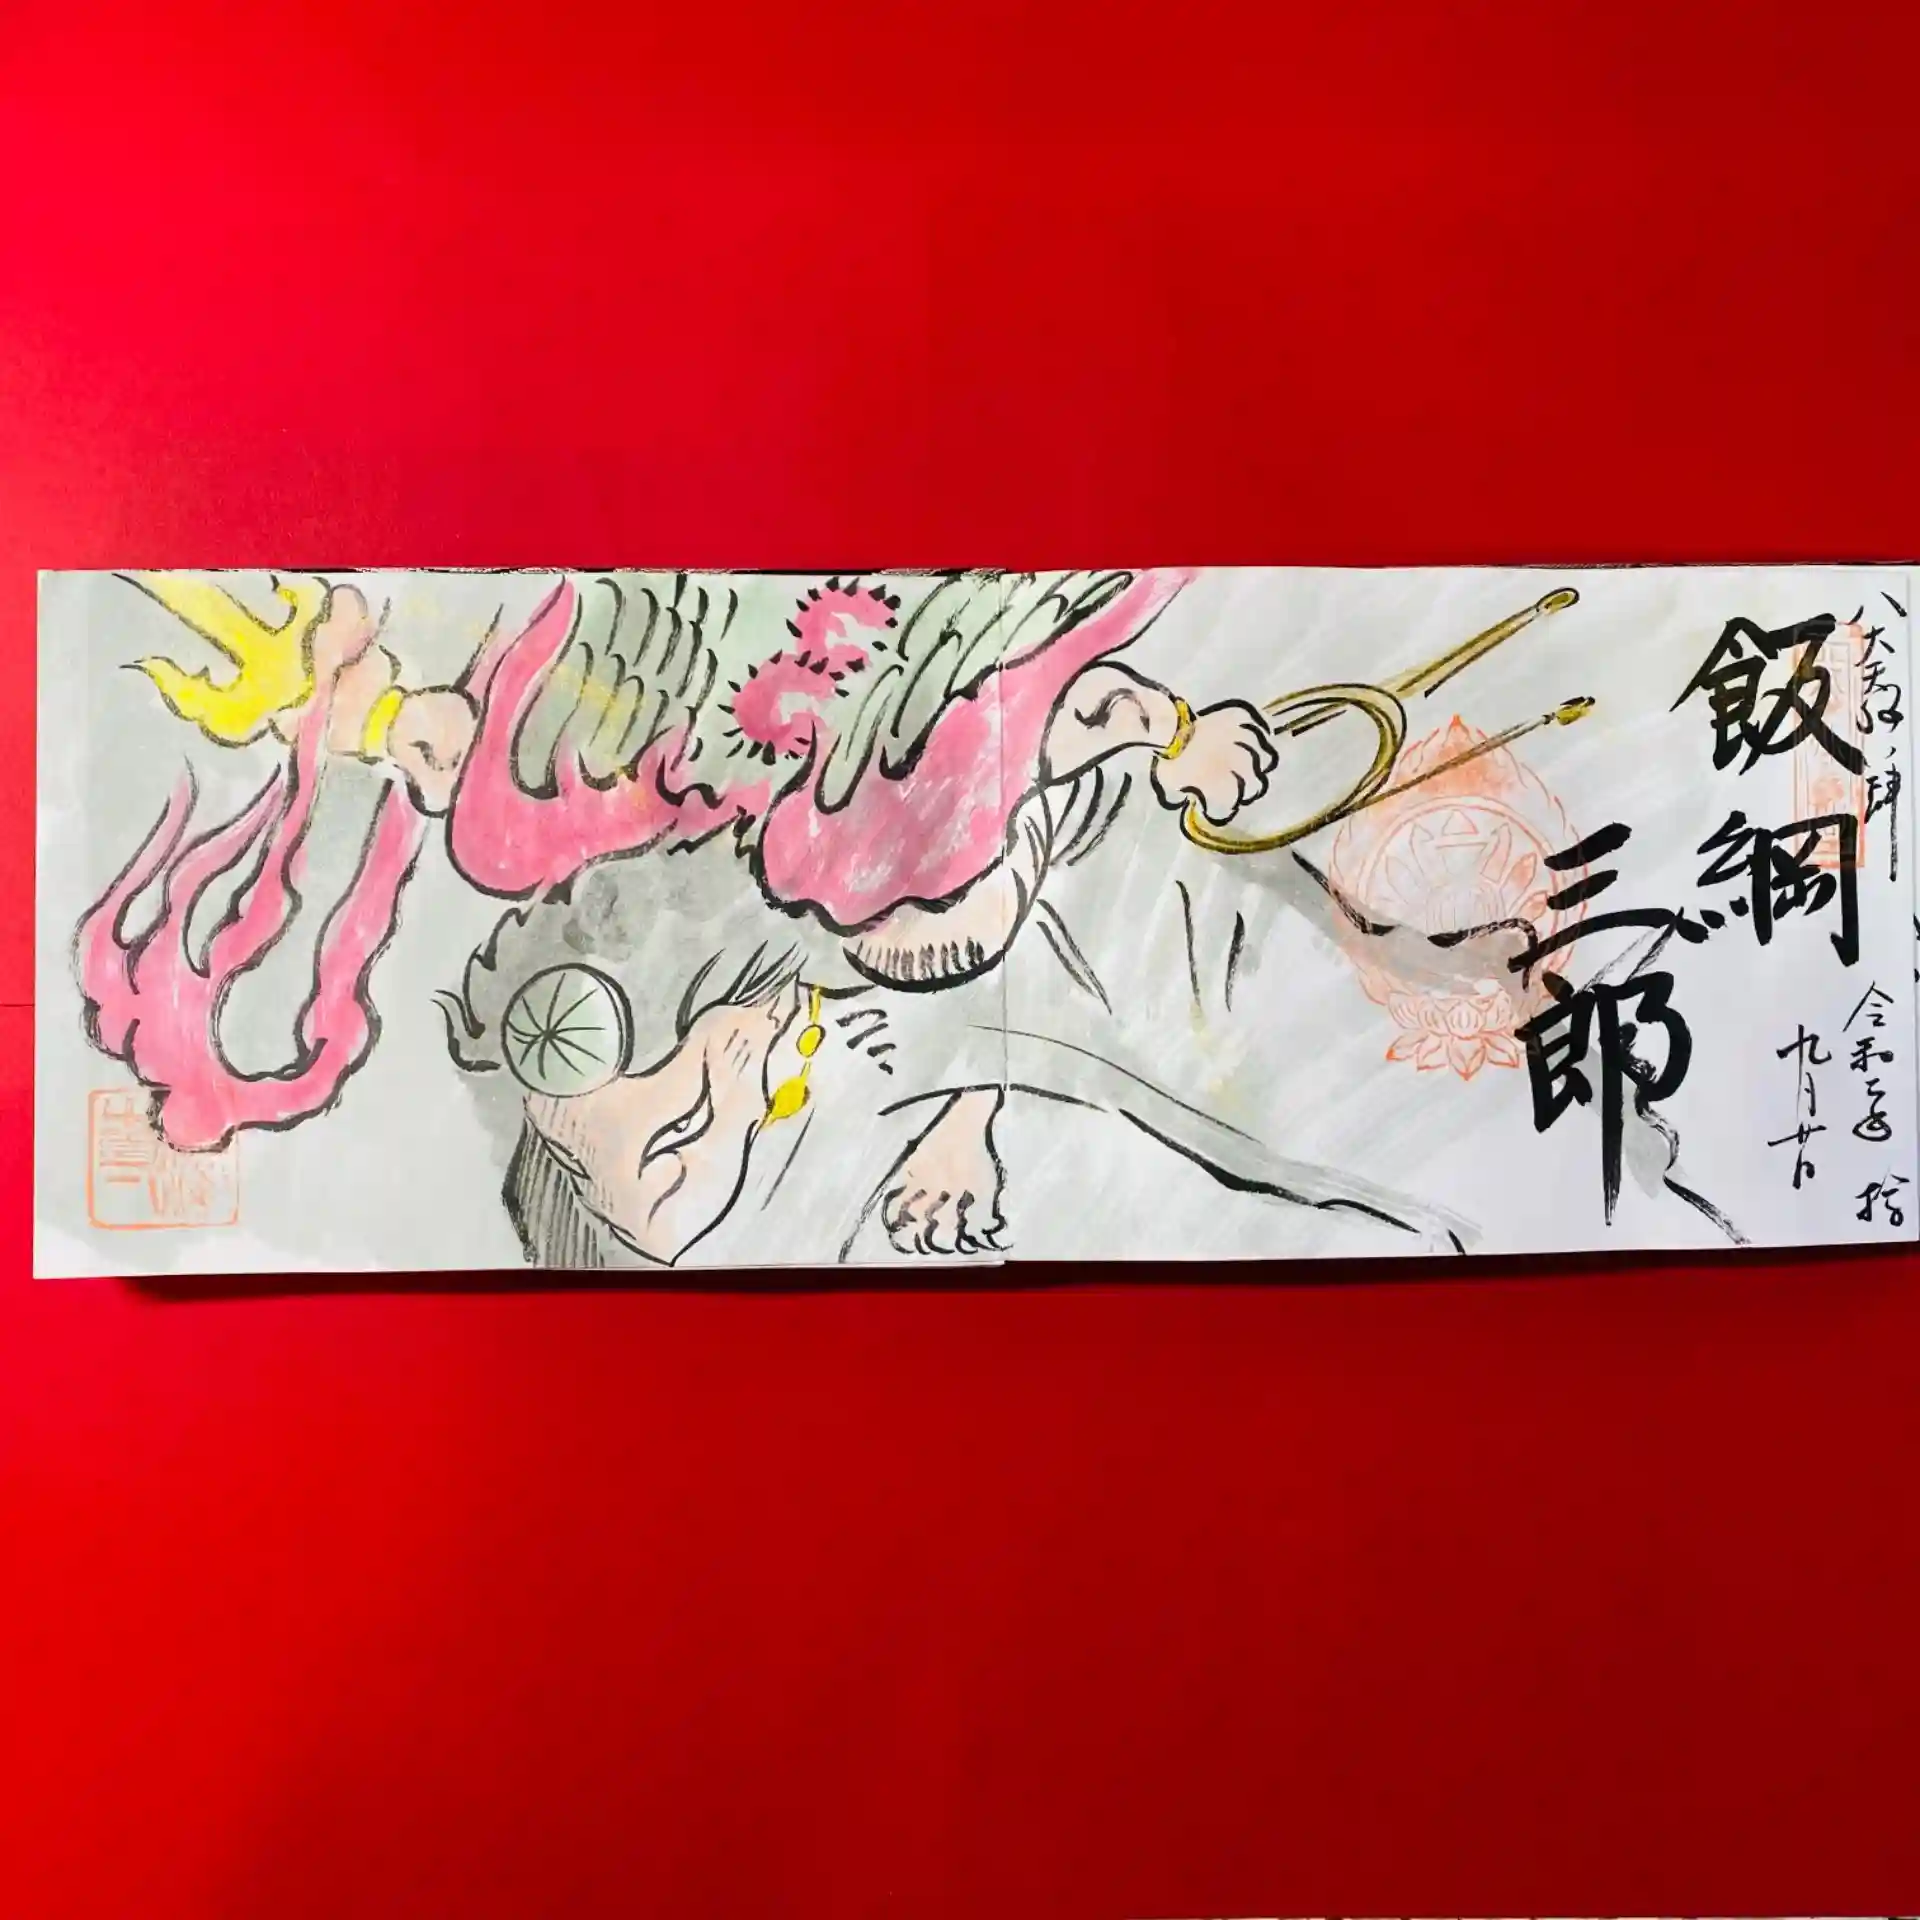 八大天狗ノ肆
飯綱
三郎
令和二年
九月廿日